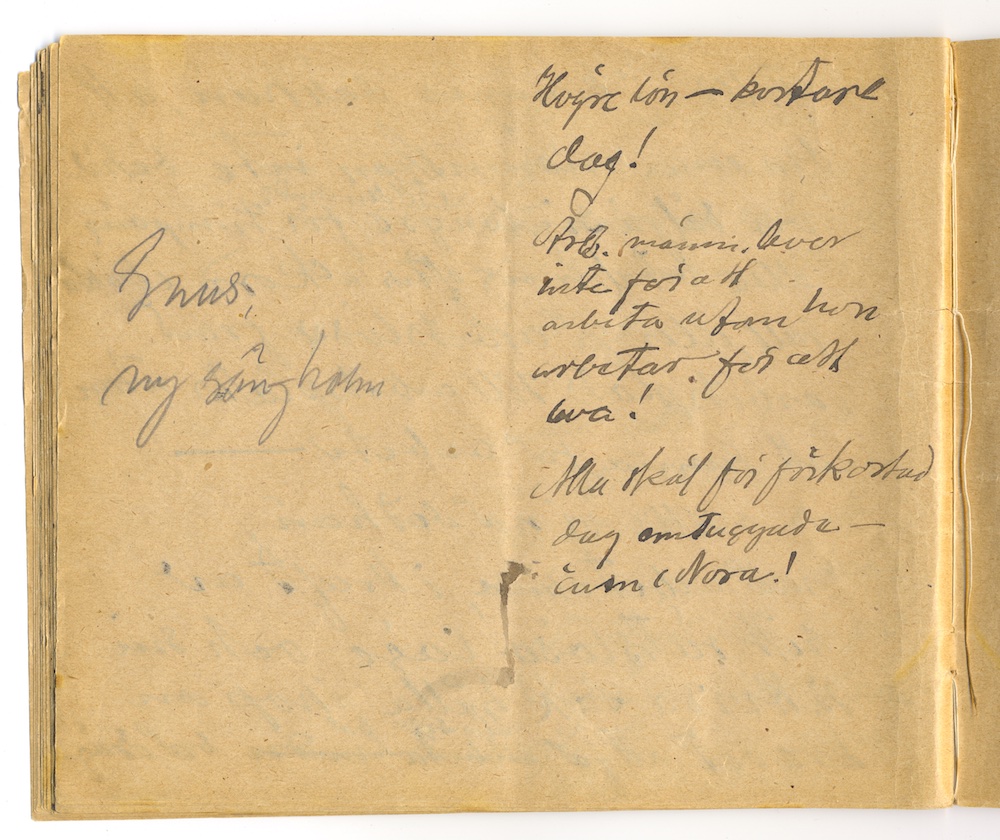 Högre lön – kortare
dag!
Arb. männi. lever
inte för att
arbeta utan hon
arbetar för att
leva!
Alla skäl för förkortad
dag omtuggade –
även Nora!
ny